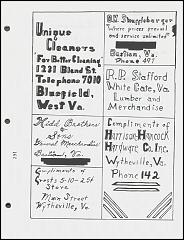 Unique
Cleaners
For Better Cleaning
1231 Bland St.
Telephone 7010
Bluefield,
West Va.
Kidd Brothers
&
Sons
General Merchandise
Bastian, Va.
Compliments of
Grants 5-10-25¢
Store
Main Street
Wytheville, Va.
Where prices prevail
and service unlimited"
Bastian, Va.
Phone 491
R.P. Stafford
White Gate, Va.
Lumber and
Merchandise
Compliments of
Harrison-Hancock
Hardware Co. Inc.
Wytheville, Va.
Phone 142